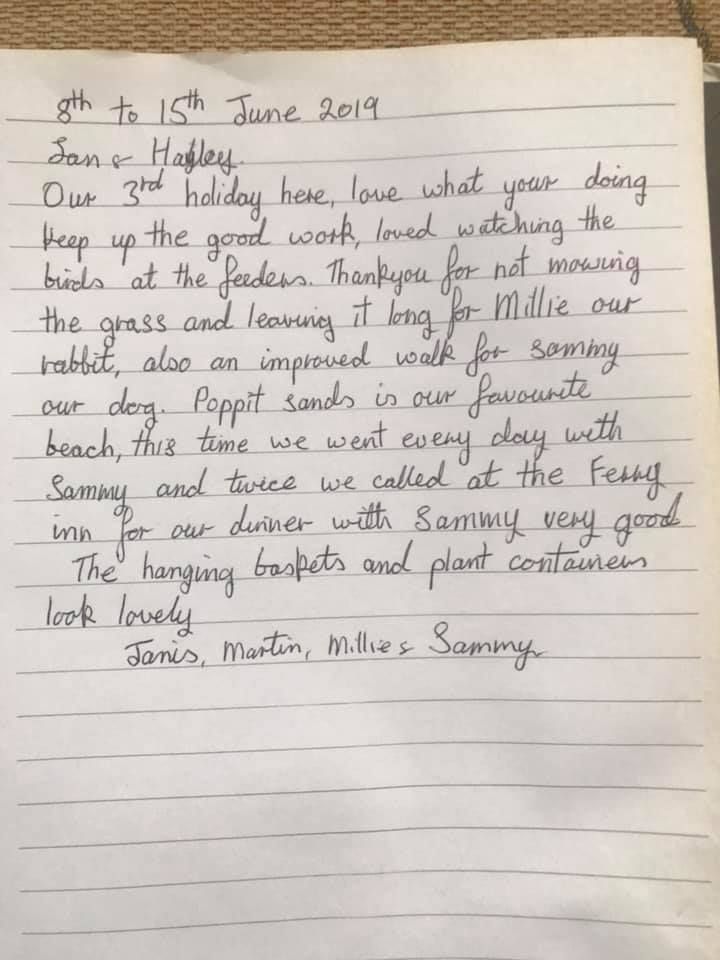 8th to 15th June 2019
& Hayley.
Our 3rd holiday here, love what your doing
keep up the good work, loved watching the
birds at the feeders. Thankyou for not mowing
the grass and leaving it long for Millie our
rabbit, also an improved walk for Sammy
our dog. Poppit sands is our favourite
beach, this time we went every day with
Sammy and twice we called at the Ferry
inn for our dinner with Sammy very good
The hanging baskets and plant containers
look lovely
Janis, Martin, Millie & Sammy